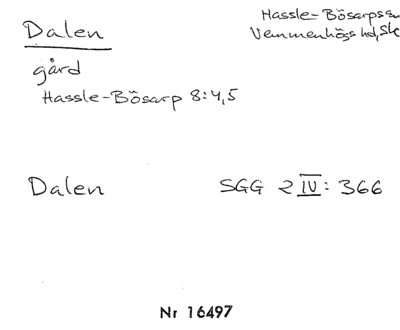 Dalen
Hassle-Bösarps sn
Vemmenhögs hd, Sk
gård
Hassle-Bösarp 8:4,5
Dalen
SGG 2 IV: 366
Nr 16497